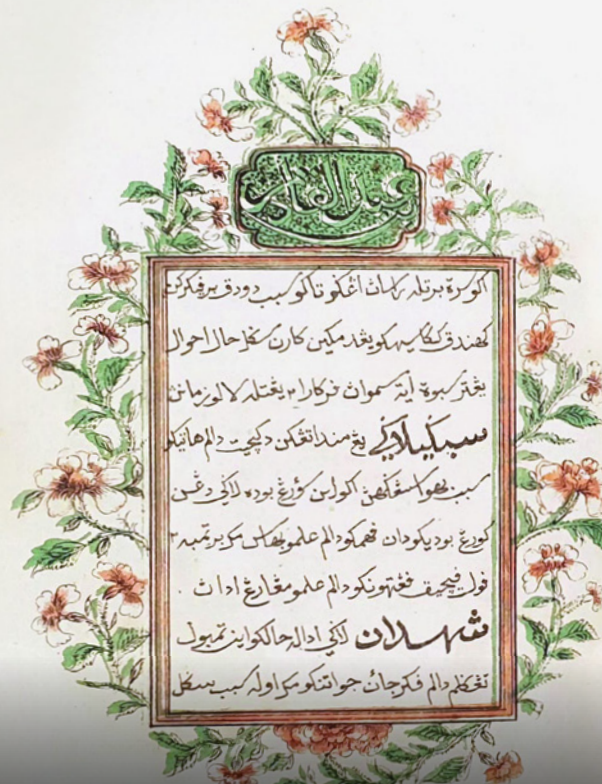 عبد القادر
اكو سرة برتله راسان اڠݢوتاكو سبب دودق برفيكركن
كهندق ككاسيهكو يڠ دمكين كارن سݢل حال احوال
يڠترسبوة ايت سموان فركارا٢ يڠتله لالو زمانن
سبݢيلاݢي يڠ منداتڠكن دكچيت دالم هاتيكو
سبب بهواسڠݢهن اكو اين كورڠ بوده لاݢي دڠن
كورڠ بوديكو دان فهمكو دالم علمو بهاس مك برتمبه٢
فول فيچيق فڠتهونكو دالم علمو مڠارڠ ادان
شهدان لاݢي اداله حالكو اين تمبول
تڠݢلم دالم فكرجاءن جواتنكو مك اوله سبب سݢل